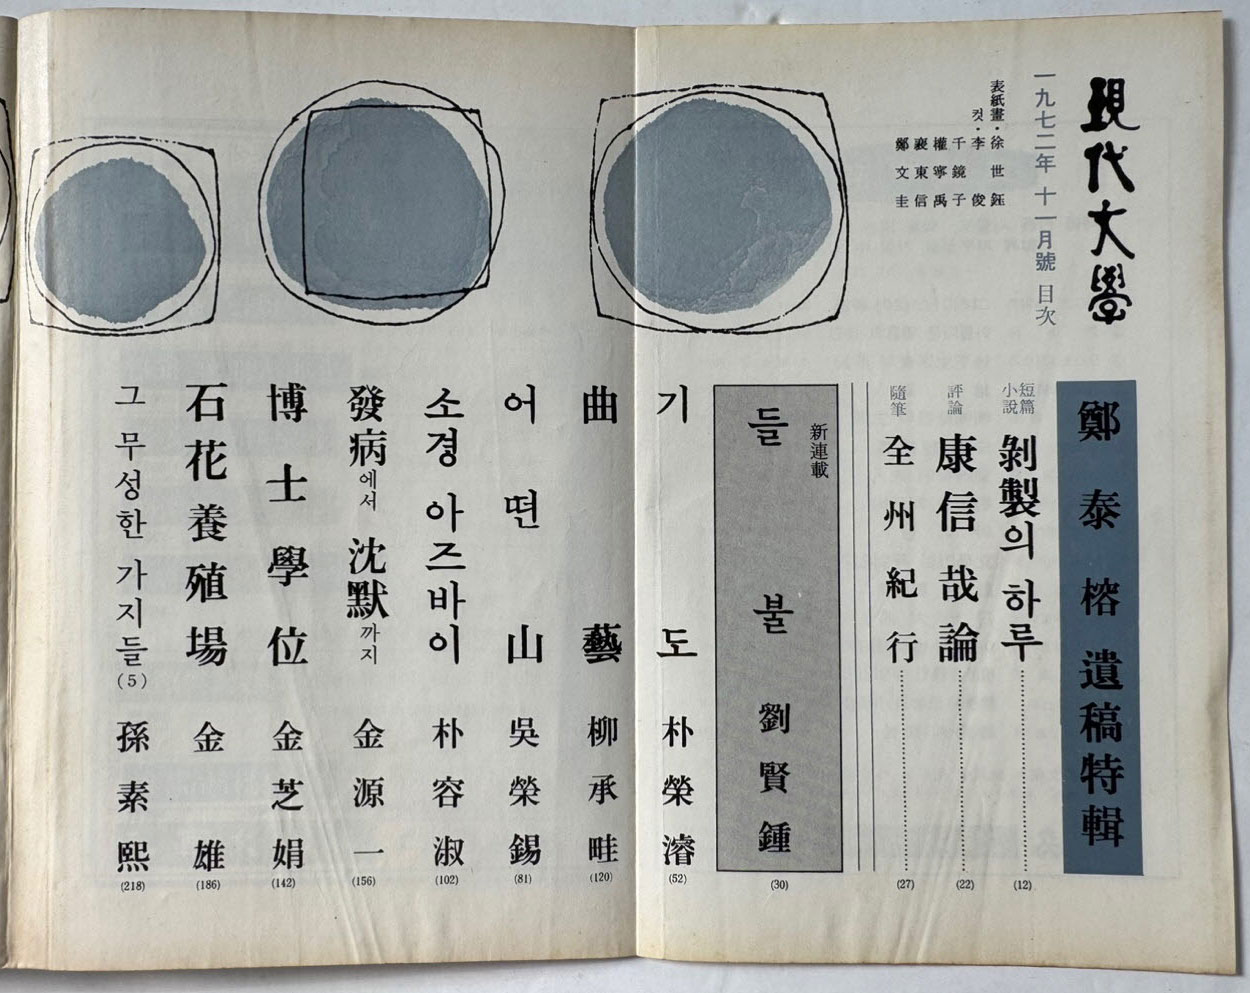 現代文學
一九七二年 十一月號 目次
表紙畫·徐世鈺
컷·李俊
千鏡子
權寧禹
裵東信
鄭文圭
鄭泰榕遺稿特輯
短篇小說 剝製의 하루 (12)
評論 康信哉論 (22)
隨筆 全州紀行 (27)
新連載
들불 劉賢鍾 (30)
기도 朴榮濬 (52)
曲藝 柳承畦 (120)
어떤 山 吳榮錫 (81)
소경 아즈바이 朴容淑 (102)
發病에서 沈默까지 金源一 (156)
博士學位 金芝娟 (142)
石花養殖場 金雄 (186)
그 무성한 가지들 (5) 孫素熙 (218)